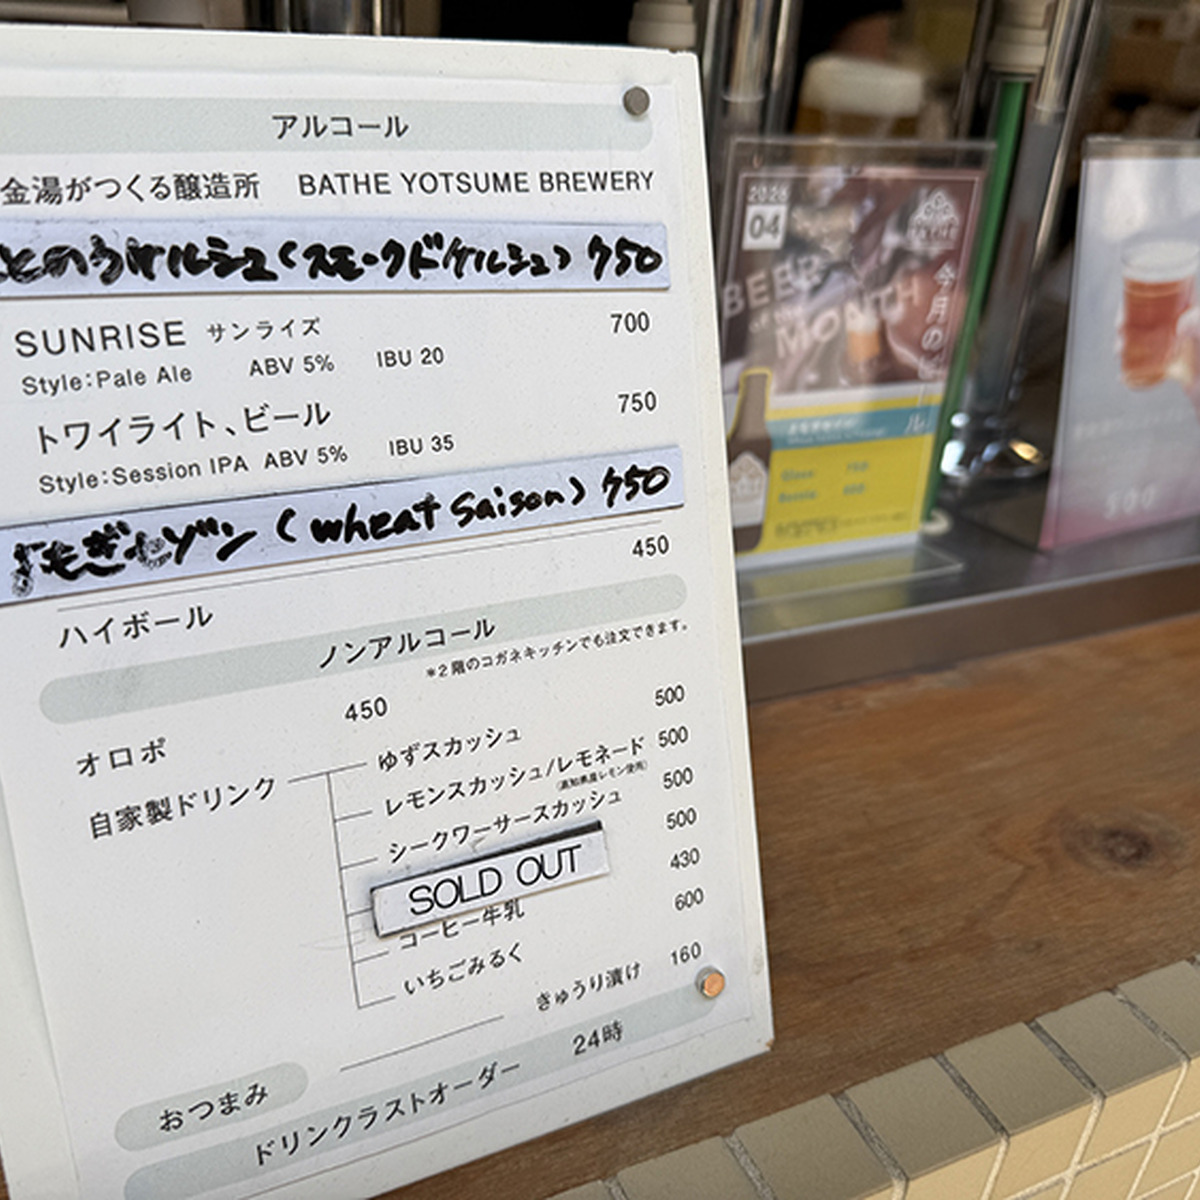 アルコール
金湯がつくる醸造所 BATHE YOTSUME BREWERY
とのうケルシュ(スモークドケルシュ) 750
SUNRISE サンライズ 700
Style:Pale Ale ABV 5% IBU 20
トワイライト、ビール 750
Style:Session IPA ABV 5% IBU 35
よもぎセゾン (wheat saison) 750
ハイボール 450
ノンアルコール
*2階のコガネキッチンでも注文できます。
オロポ 450
自家製ドリンク
ゆずスカッシュ 500
レモンスカッシュ/レモネード 500
(高知県産レモン使用)
シークワーサースカッシュ 500
SOLD OUT 500
コーヒー牛乳 430
いちごみるく 600
おつまみ
きゅうり漬け 160
ドリンクラストオーダー 24時
2026
04
BEER
OF THE
MONTH
今月のビール
500